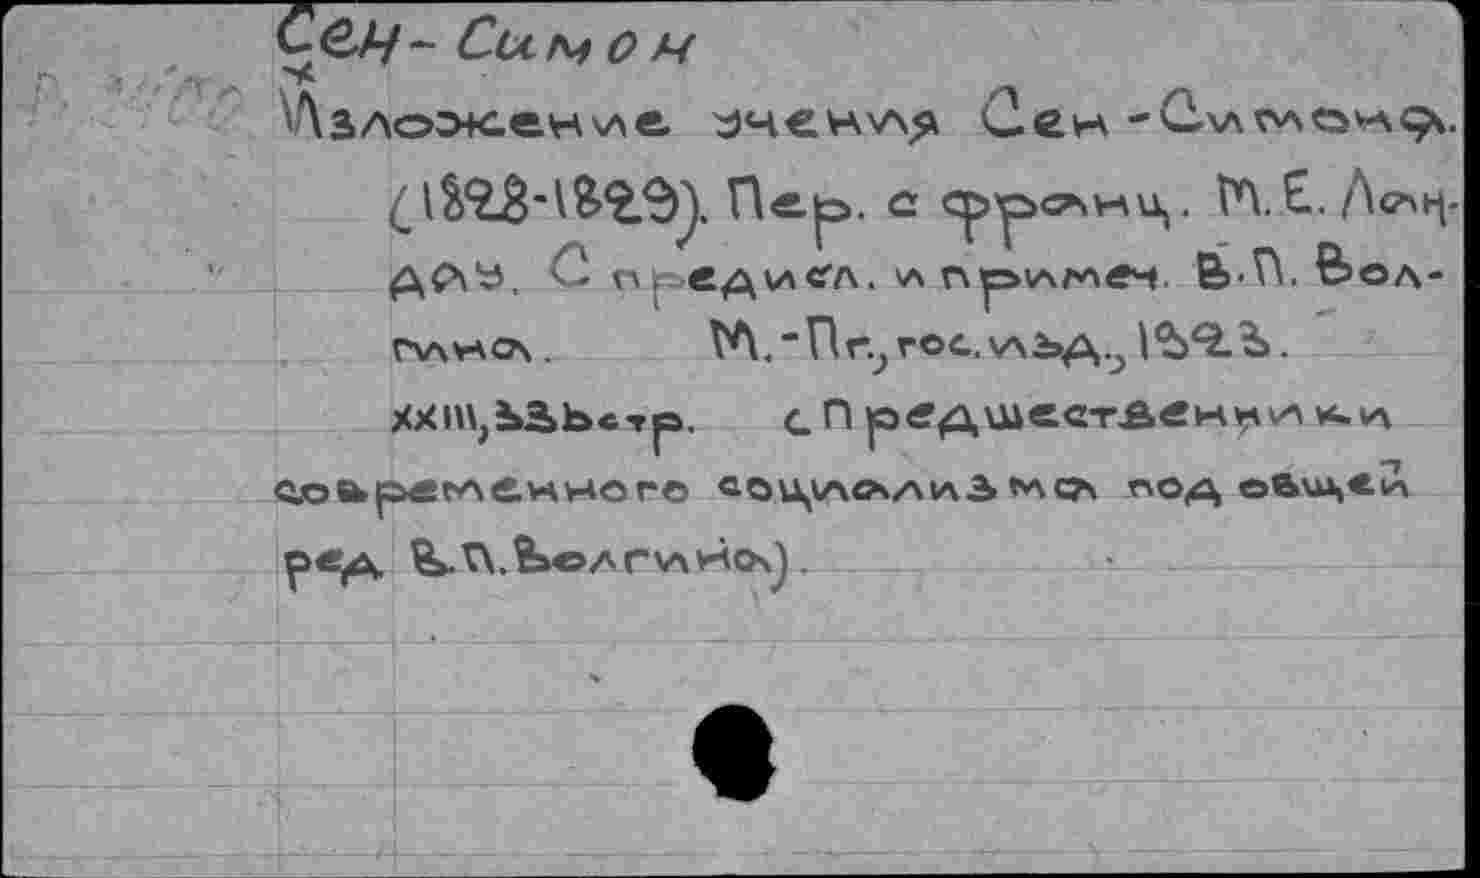 Сен-Симон
Изложение учения Сен-Симона.
(1828-1829). Пер. с франц. М.Е. Лан-
дау. С предисл. и примеч. В.П. Вол-
гина. М.-Пг., гос. изд., 1923.
XXIII, 335стр. с Предшественники
современного социализма под общей
ред В.П. Волгина).